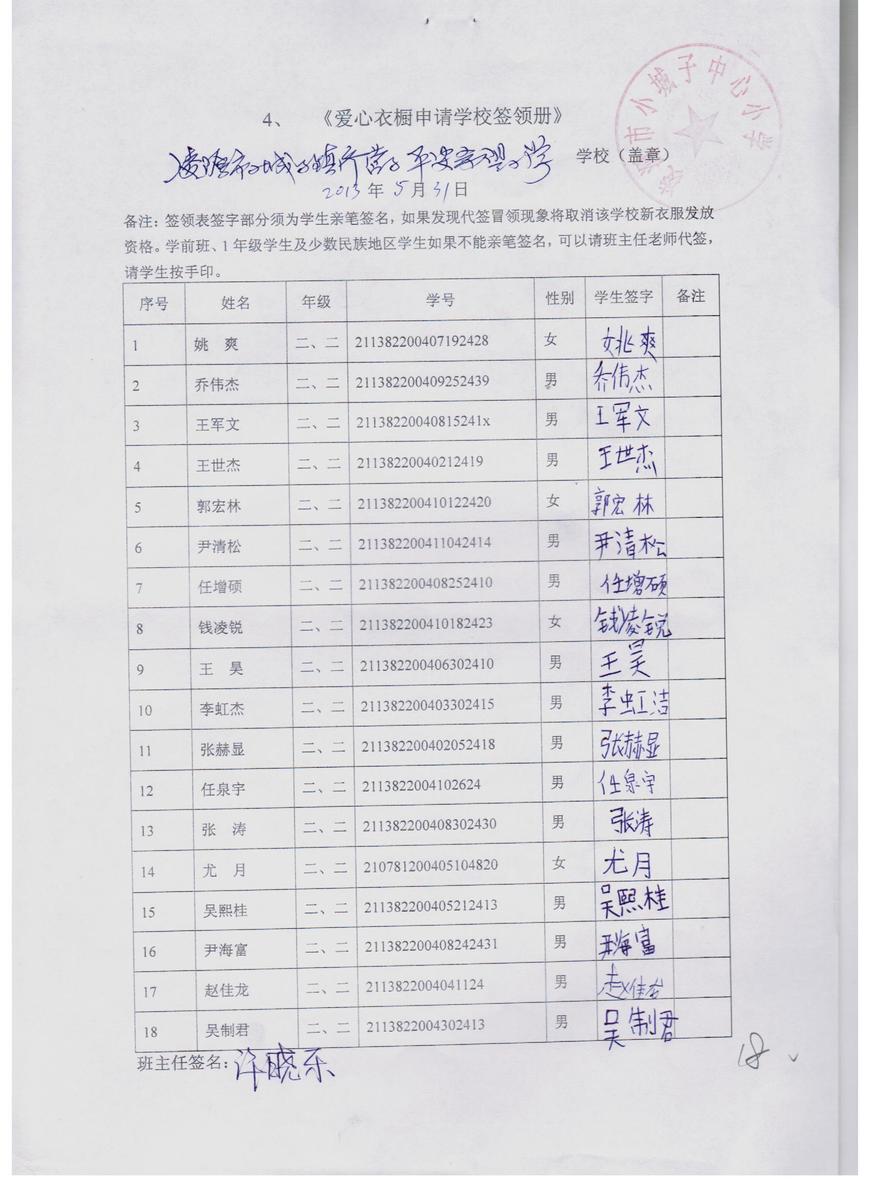 市小城子中心小学
4、 《爱心衣橱申请学校签领册》
凌源市小城子镇 平安希望小学 学校（盖章）
2013年5月31日
备注：签领表签字部分须为学生亲笔签名，如果发现代签冒领现象将取消该学校新衣服发放
资格。学前班、1年级学生及少数民族地区学生如果不能亲笔签名，可以请班主任老师代签，
请学生按手印。
序号 姓名 年级 学号 性别 学生签字 备注
1 姚 爽 二、二 211382200407192428 女 姚爽
2 乔伟杰 二、二 211382200409252439 男 乔伟杰
3 王军文 二、二 21138220040815241x 男 王军文
4 王世杰 二、二 21138220040212419 男 王世杰
5 郭宏林 二、二 211382200410122420 女 郭宏林
6 尹清松 二、二 211382200411042414 男 尹清松
7 任增硕 二、二 211382200408252410 男 任增硕
8 钱凌锐 二、二 211382200410182423 女 钱凌锐
9 王 昊 二、二 211382200406302410 男 王昊
10 李虹杰 二、二 211382200403302415 男 李虹洁
11 张赫显 二、二 211382200402052418 男 张赫显
12 任泉宇 二、二 2113822004102624 男 任泉宇
13 张 涛 二、二 211382200408302430 男 张涛
14 尤 月 二、二 210781200405104820 女 尤月
15 吴熙桂 二、二 211382200405212413 男 吴熙桂
16 尹海富 二、二 211382200408242431 男 尹海富
17 赵佳龙 二、二 2113822004041124 男 赵佳龙
18 吴制君 二、二 2113822004302413 男 吴制君
班主任签名：许晓乐
18